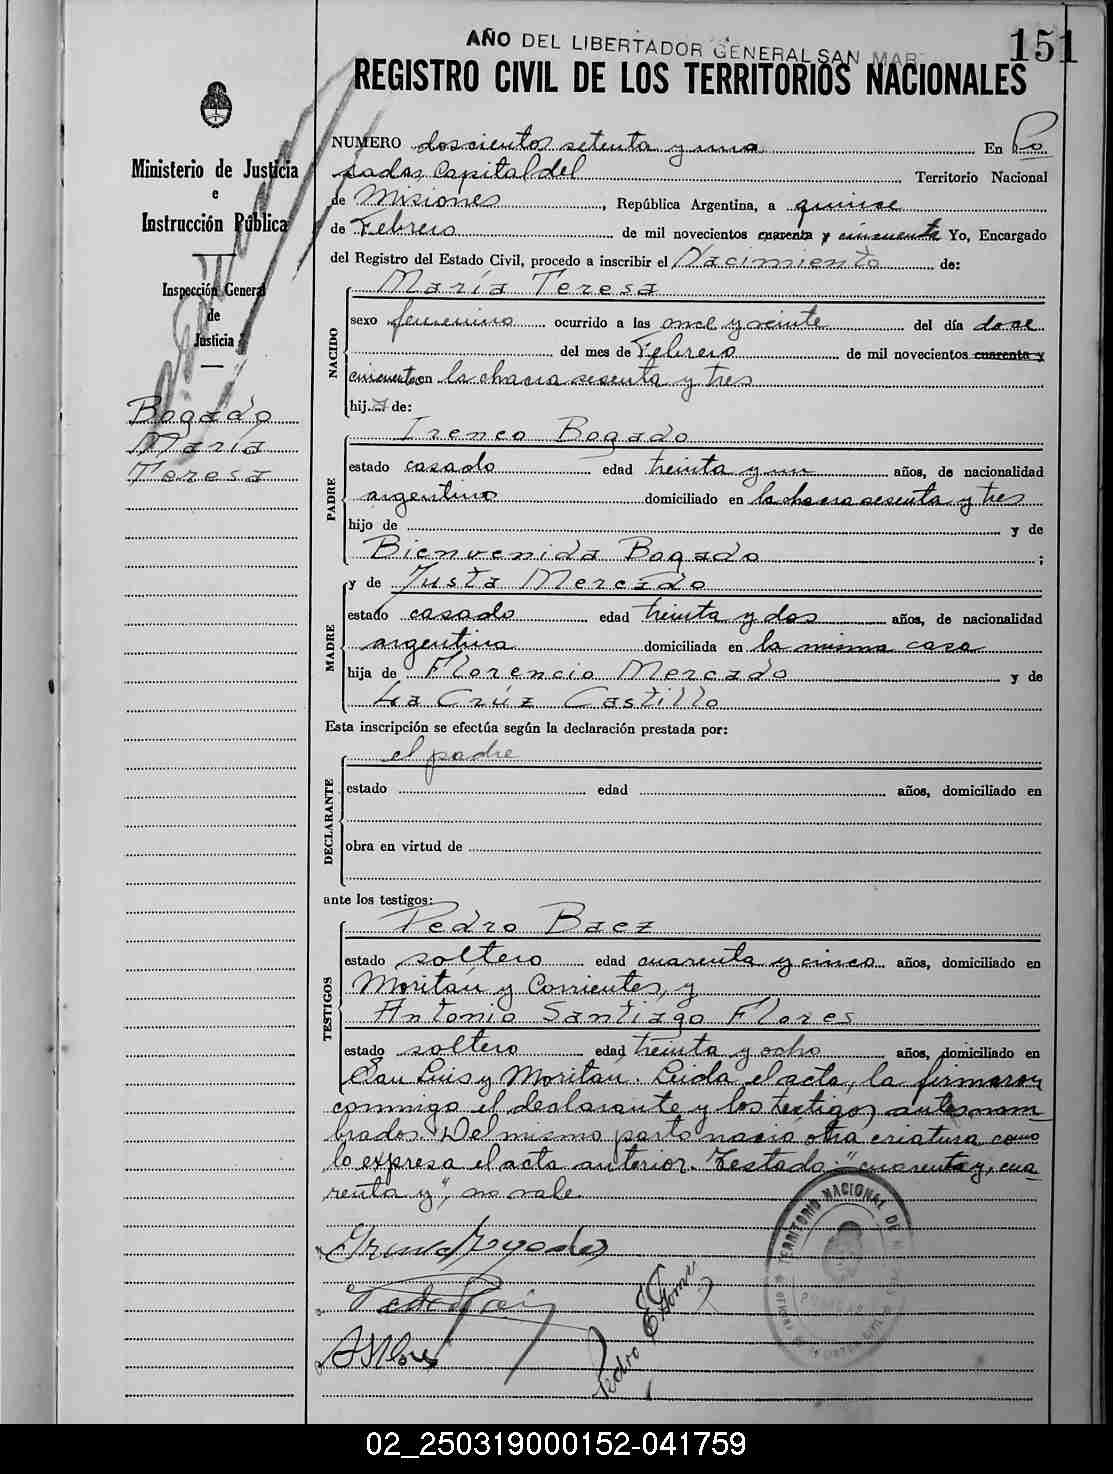 AÑO DEL LIBERTADOR GENERAL SAN MAR
151
REGISTRO CIVIL DE LOS TERRITORIOS NACIONALES
Ministerio de Justicia
e
Instrucción Pública
Inspección General
de
Justicia
Bogado
María
Teresa
NUMERO doscientos setenta y una En Po
sadas, Capital del Territorio Nacional
de Misiones, República Argentina, a quince
de Febrero de mil novecientos cuarenta y cincuenta Yo, Encargado
del Registro del Estado Civil, procedo a inscribir el Nacimiento de:
NACIDO
María Teresa
sexo femenino ocurrido a las once y veinte del día doce
del mes de Febrero de mil novecientos cuarenta y
cincuenta en la chacra sesenta y tres
hij a de:
PADRE
Ireneo Bogado
estado casado edad treinta y un años, de nacionalidad
argentino domiciliado en la chacra sesenta y tres
hijo de y de
Bienvenida Bogado ;
MADRE
y de Justa Mercado
estado casado edad treinta y dos años, de nacionalidad
argentina domiciliada en la misma casa
hija de Florencio Mercado y de
La Crúz Castillo
Esta inscripción se efectúa según la declaración prestada por:
DECLARANTE
el padre
estado edad años, domiciliado en
obra en virtud de
ante los testigos:
TESTIGOS
Pedro Baez
estado soltero edad cuarenta y cinco años, domiciliado en
Moritán y Corrientes, y
Antonio Santiago Flores
estado soltero edad treinta y ocho años, domiciliado en
San Luis y Moritán. Leida el acta, la firmaron
conmigo el declarante y los testigos antes nom-
brados. Del mismo parto nació otra criatura como
lo expresa el acta anterior. Testado: "cuarenta y, cua-
renta y", no vale.
TERRITORIO NACIONAL DE
A Flores
Pedro E. Gomez
02_250319000152-041759